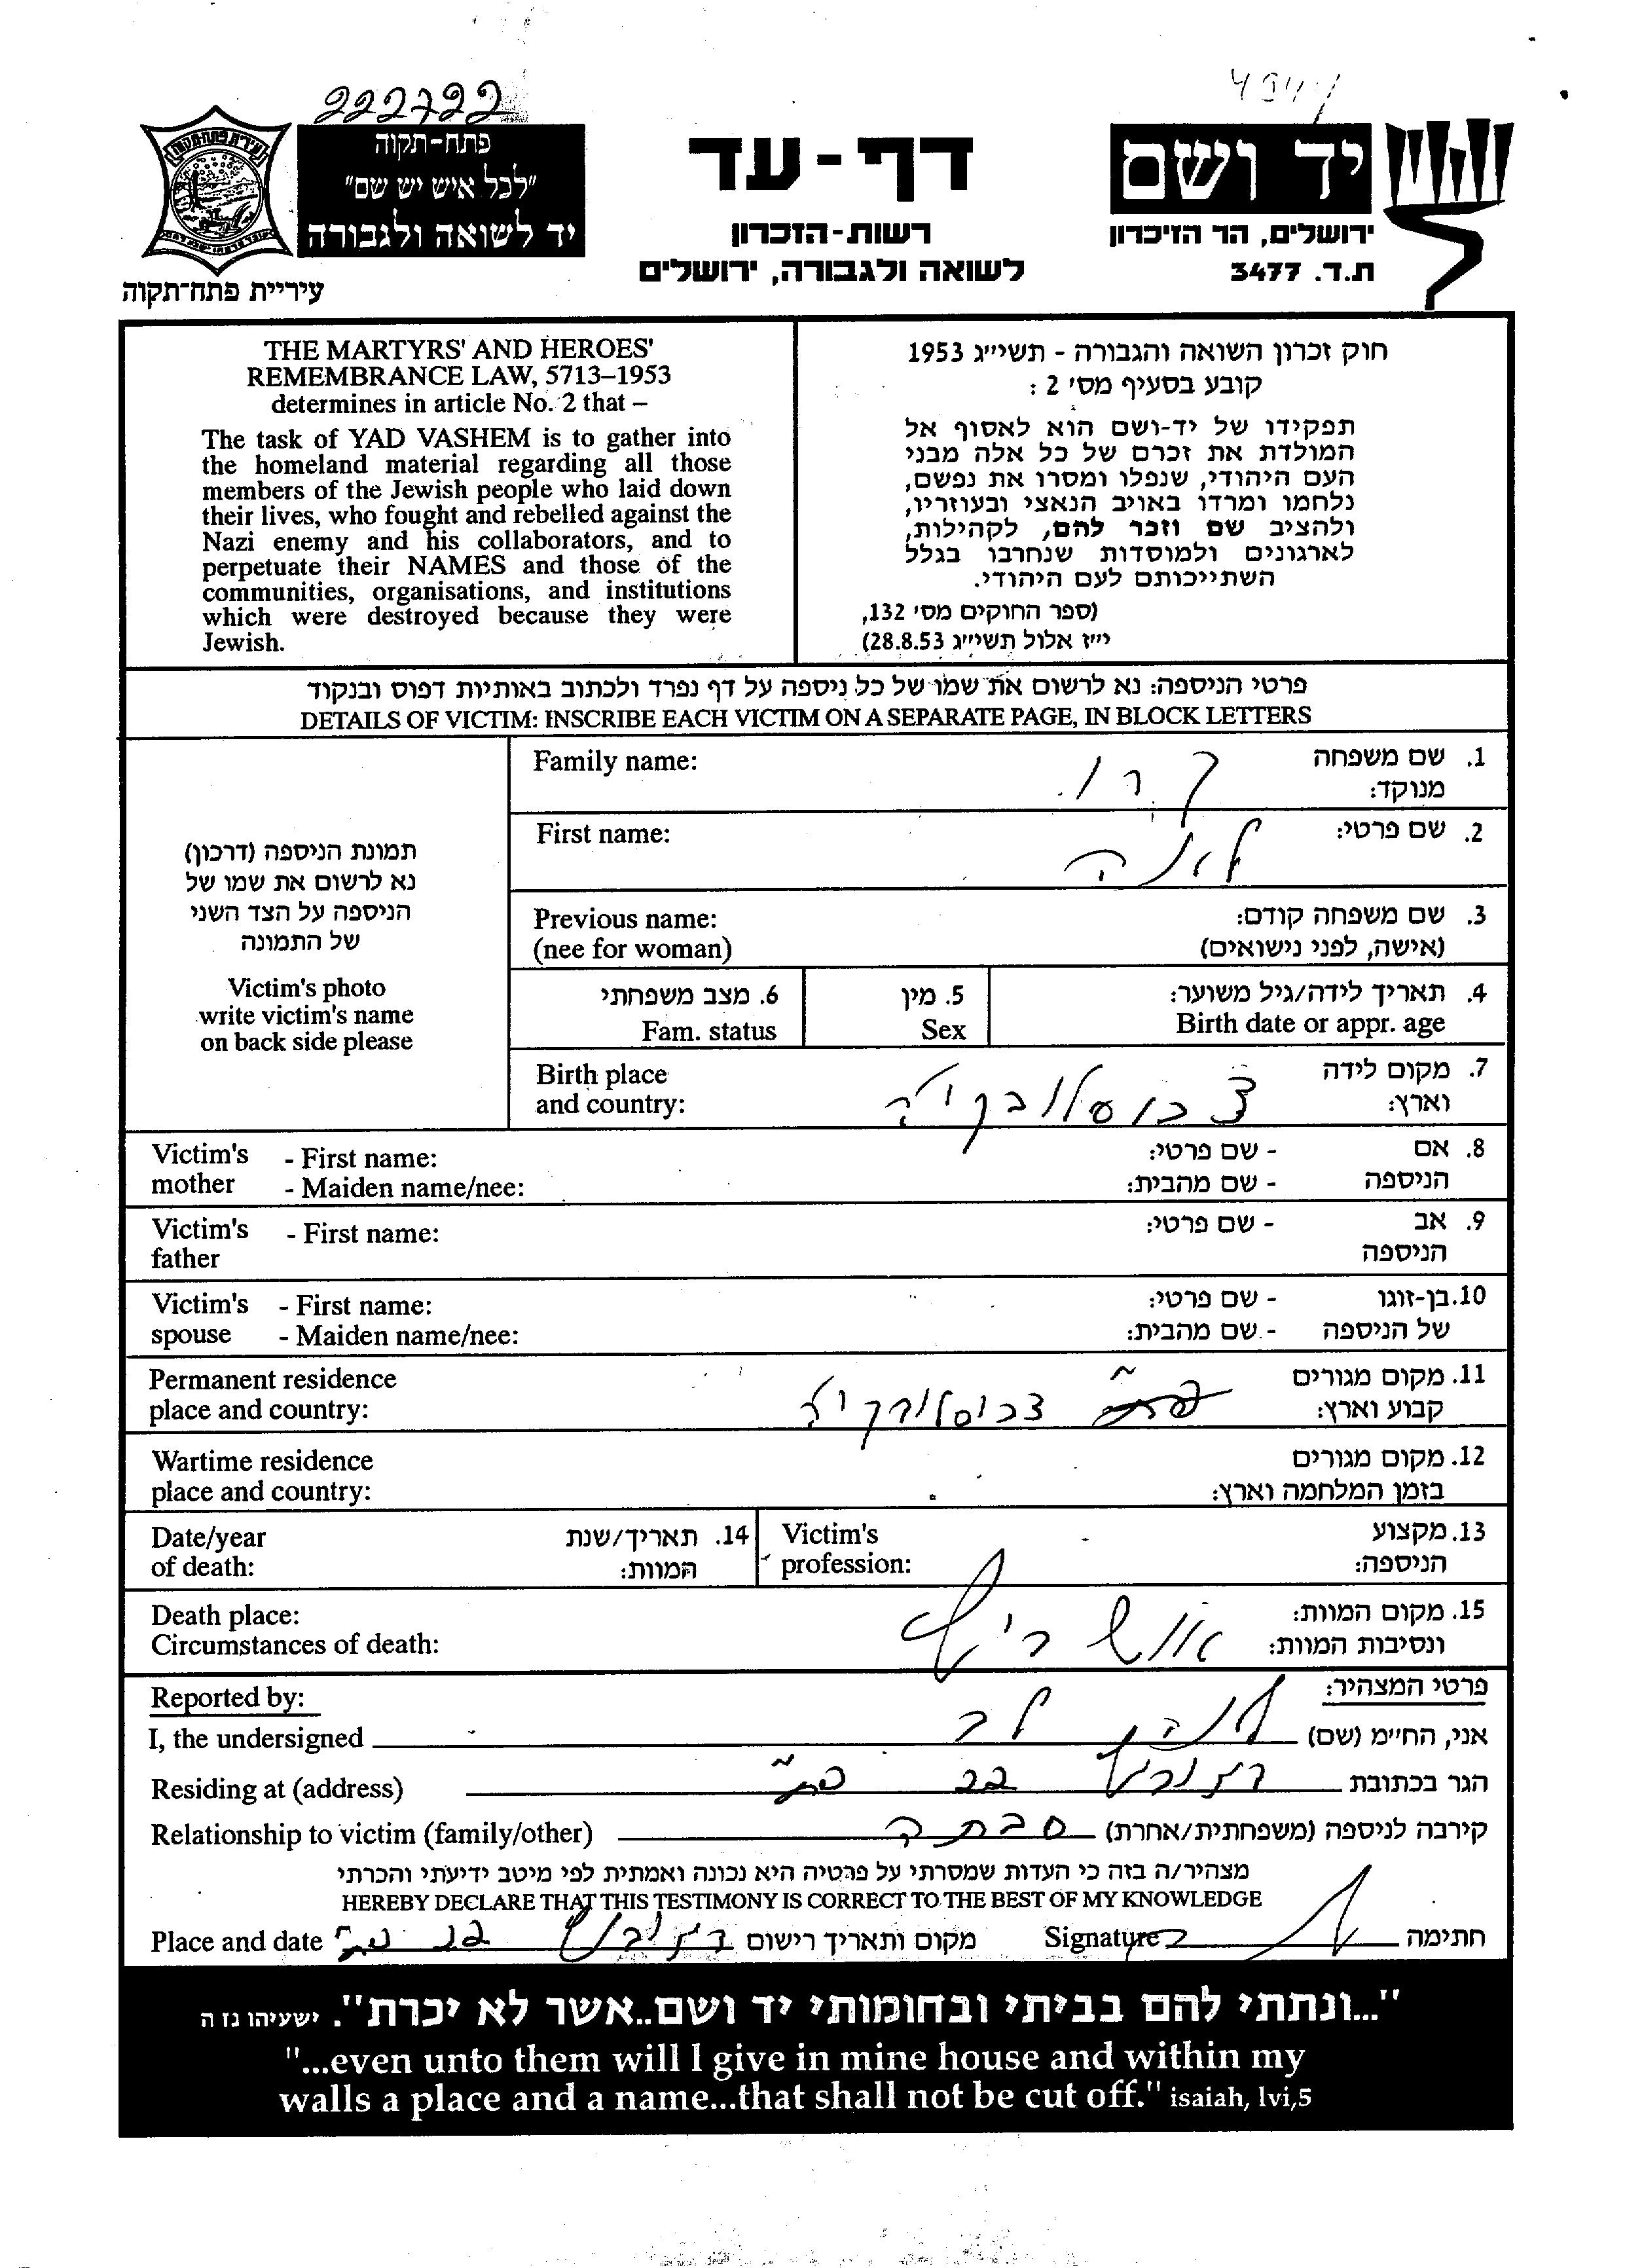 222722
פתח-תקוה
"לכל איש יש שם"
יד לשואה ולגבורה
עיריית פתח-תקוה
דף-עד
רשות-הזכרון
לשואה ולגבורה, ירושלים
יד ושם
ירושלים, הר הזיכרון
ת.ד. 3477
THE MARTYRS' AND HEROES'
REMEMBRANCE LAW, 5713–1953
determines in article No. 2 that –
The task of YAD VASHEM is to gather into
the homeland material regarding all those
members of the Jewish people who laid down
their lives, who fought and rebelled against the
Nazi enemy and his collaborators, and to
perpetuate their NAMES and those of the
communities, organisations, and institutions
which were destroyed because they were
Jewish.
חוק זכרון השואה והגבורה - תשי״ג 1953
קובע בסעיף מס׳ 2 :
תפקידו של יד-ושם הוא לאסוף אל
המולדת את זכרם של כל אלה מבני
העם היהודי, שנפלו ומסרו את נפשם,
נלחמו ומרדו באויב הנאצי ובעוזריו,
ולהציב שם וזכר להם, לקהילות,
לארגונים ולמוסדות שנחרבו בגלל
השתייכותם לעם היהודי.
(ספר החוקים מס׳ 132,
י״ז אלול תשי״ג 28.8.53)
פרטי הניספה: נא לרשום את שמו של כל ניספה על דף נפרד ולכתוב באותיות דפוס ובנקוד
DETAILS OF VICTIM: INSCRIBE EACH VICTIM ON A SEPARATE PAGE, IN BLOCK LETTERS
תמונת הניספה (דרכון)
נא לרשום את שמו של
הניספה על הצד השני
של התמונה
Victim's photo
write victim's name
on back side please
1. שם משפחה קרו Family name:
מנוקד:
2. שם פרטי: First name:
3. שם משפחה קודם: Previous name:
(אישה, לפני נישואים) (nee for woman)
4. תאריך לידה/גיל משוער: 5. מין 6. מצב משפחתי
Birth date or appr. age Sex Fam. status
7. מקום לידה צכוסלובקיה Birth place
וארץ: and country:
8. אם - שם פרטי: Victim's - First name:
הניספה - שם מהבית: mother - Maiden name/nee:
9. אב - שם פרטי: Victim's - First name:
הניספה father
10. בן-זוגו - שם פרטי: Victim's - First name:
של הניספה - שם מהבית: spouse - Maiden name/nee:
11. מקום מגורים Permanent residence
קבוע וארץ: צכוסלובקיה place and country:
12. מקום מגורים Wartime residence
בזמן המלחמה וארץ: place and country:
13. מקצוע Victim's 14. תאריך/שנת Date/year
הניספה: profession: המוות: of death:
15. מקום המוות: Death place:
ונסיבות המוות: אושויץ Circumstances of death:
פרטי המצהיר: Reported by:
אני, החי״מ (שם) I, the undersigned
הגר בכתובת 22 פ״ת Residing at (address)
קירבה לניספה (משפחתית/אחרת) סבתה Relationship to victim (family/other)
מצהיר/ה בזה כי העדות שמסרתי על פרטיה היא נכונה ואמתית לפי מיטב ידיעתי והכרתי
HEREBY DECLARE THAT THIS TESTIMONY IS CORRECT TO THE BEST OF MY KNOWLEDGE
חתימה Signature מקום ותאריך רישום 22 פ״ת Place and date
"...ונתתי להם בביתי ובחומותי יד ושם..אשר לא יכרת". ישעיהו נז ה
"...even unto them will I give in mine house and within my
walls a place and a name...that shall not be cut off." isaiah, lvi,5